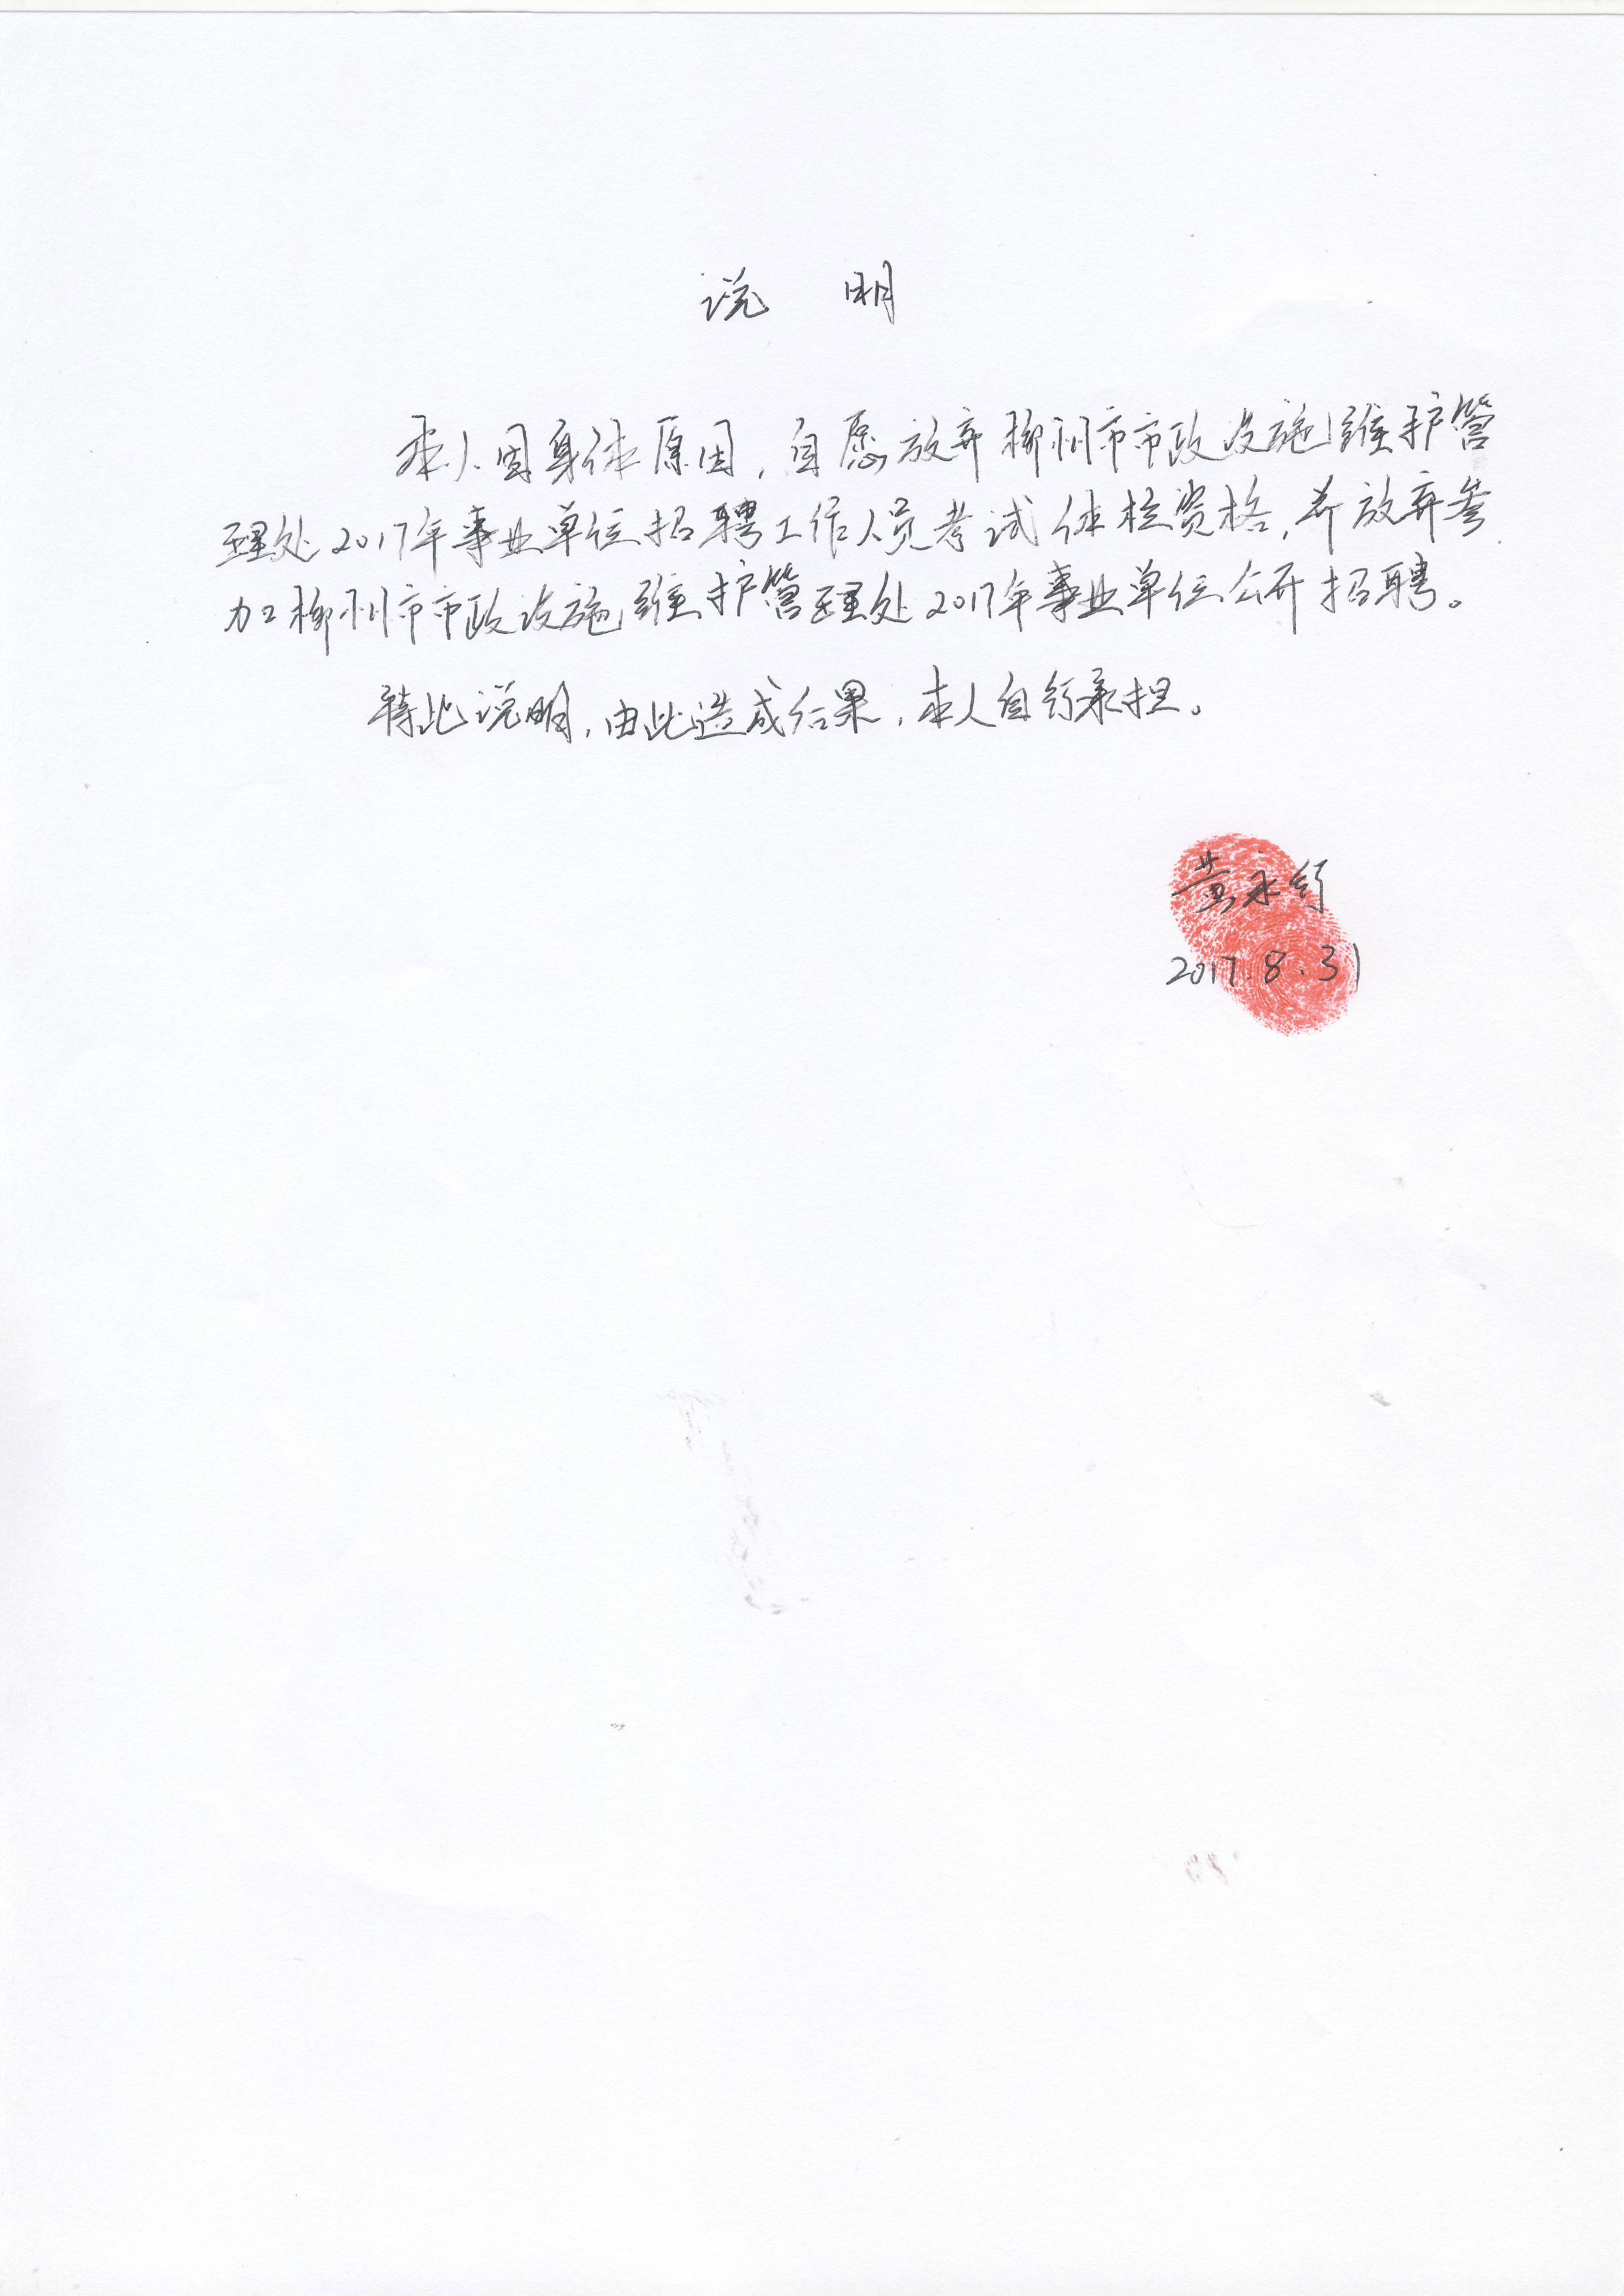 说 明
本人因身体原因，自愿放弃柳州市市政设施维护管
理处2017年事业单位招聘工作人员考试体检资格，并放弃参
加柳州市市政设施维护管理处2017年事业单位公开招聘。
特此说明，由此造成后果，本人自行承担。
黄永行
2017.8.31